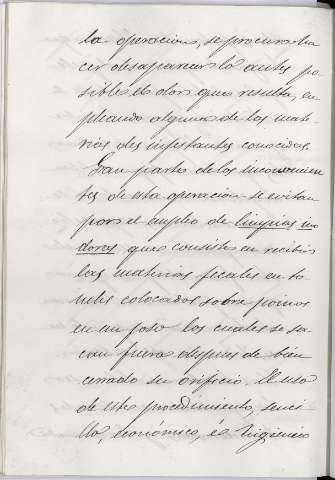 la operacion, se procurará ha
cer desaparecer lo antes po
sible el olor que resulta, em
pleando alguna de las mate
rias desinfectantes conocidas.
Gran parte de los inconvenien
tes de esta operacion se evitan
por el empleo de limpias ino
doras que consiste en recibir
las materias fecales en to
neles colocados sobre poinos
en un foso los cuales se sa
can fuera despues de bien
cerrado su orificio. El uso
de este procedimiento, senci
llo, económico, é higiénico